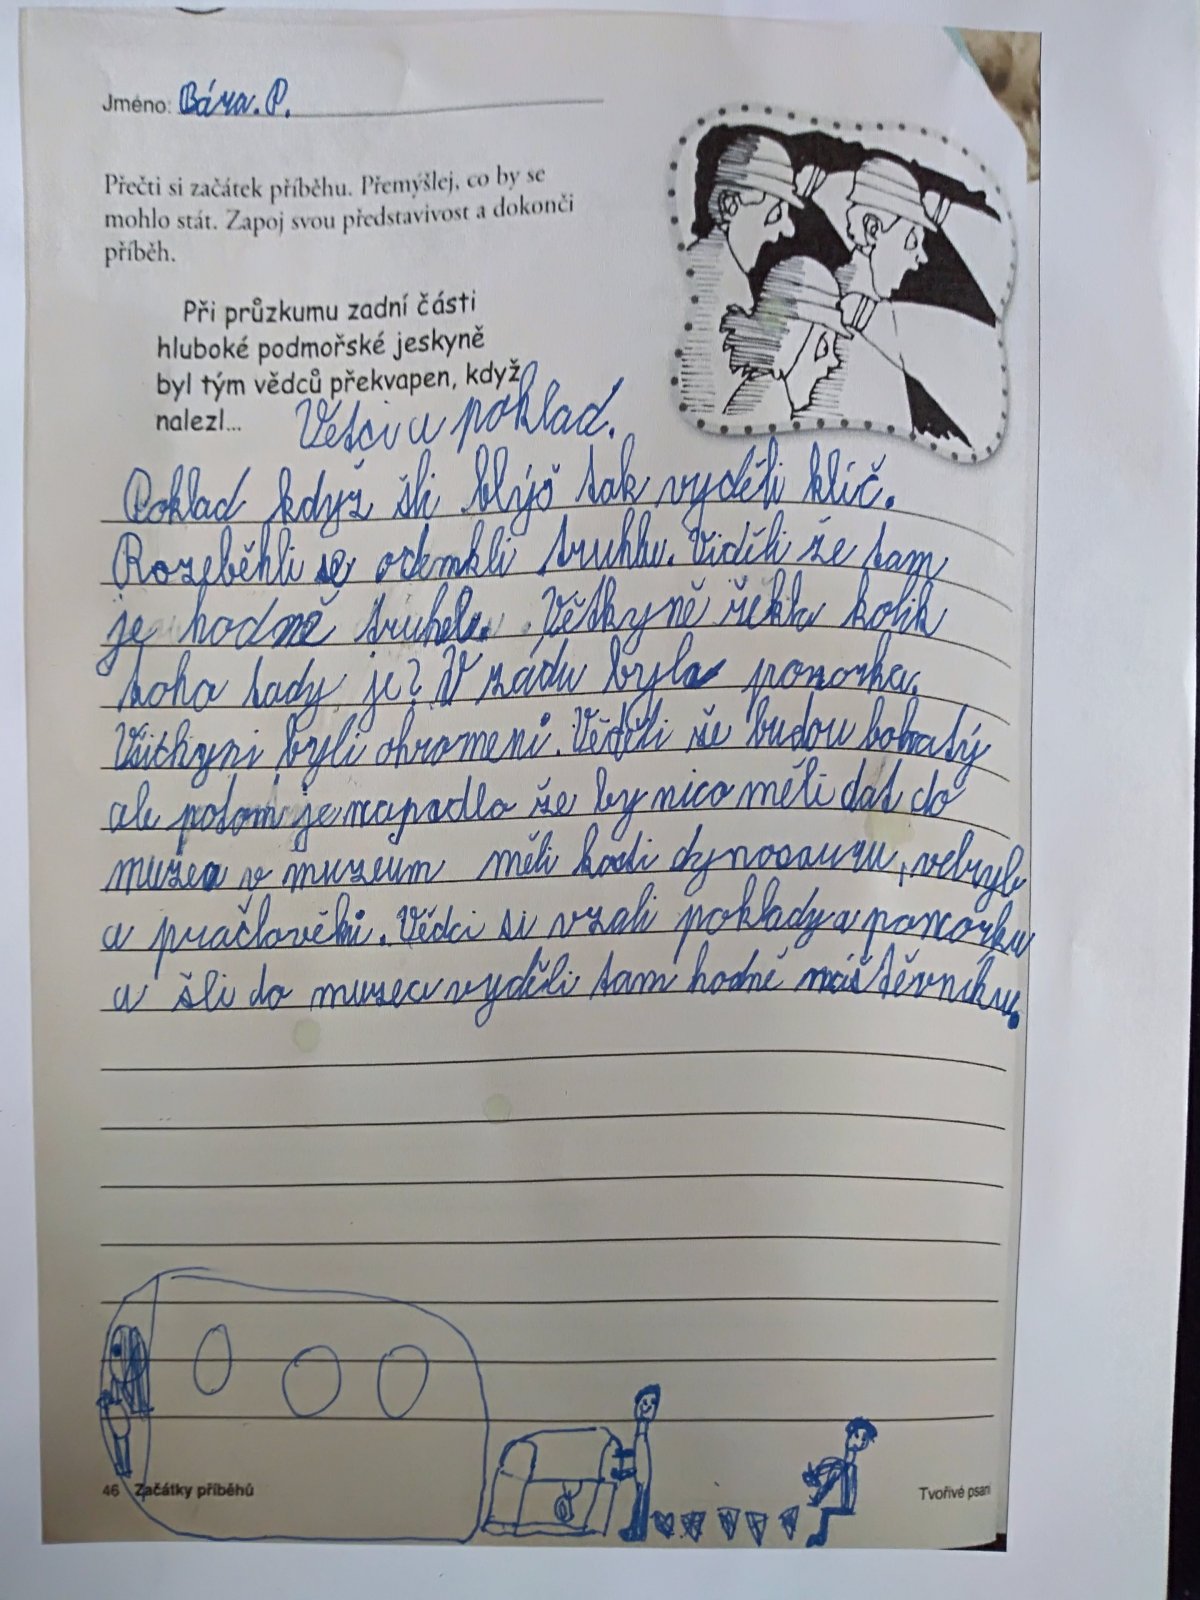 Jméno: Bára. P.
Přečti si začátek příběhu. Přemýšlej, co by se
mohlo stát. Zapoj svou představivost a dokonči
příběh.
Při průzkumu zadní části
hluboké podmořské jeskyně
byl tým vědců překvapen, když
nalezl...
Větci a poklad.
Poklad když šli blýš tak vyděli klíč.
Rozeběhli se odemkli truhlu. Viděli že tam
je hodně truhel. Větkyně řekla kolik
toho tady je? V zádu byla ponorka.
Všichyni byli ohromeni. Věděli že budou bohatý
ale potom je napadlo že by nico měli dat do
muzea v muzeum měli kosti dynosauru, velryb
a pračlověků. Vědci si vzali poklady a poncorku
a šli do muzea vyděli tam hodně náštěvníku.
46 Začátky příběhů
Tvořivé psaní